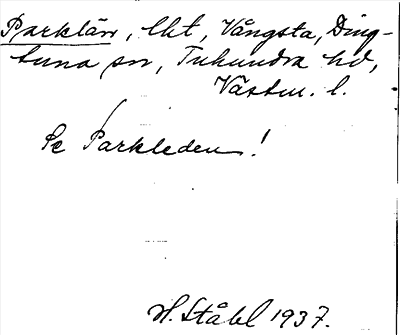 Parklän, lht, Vångsta, Ding-
tuna sn, Tuhundra hd,
Västm. l.
Se Parkleden!
H. Ståhl 1937.